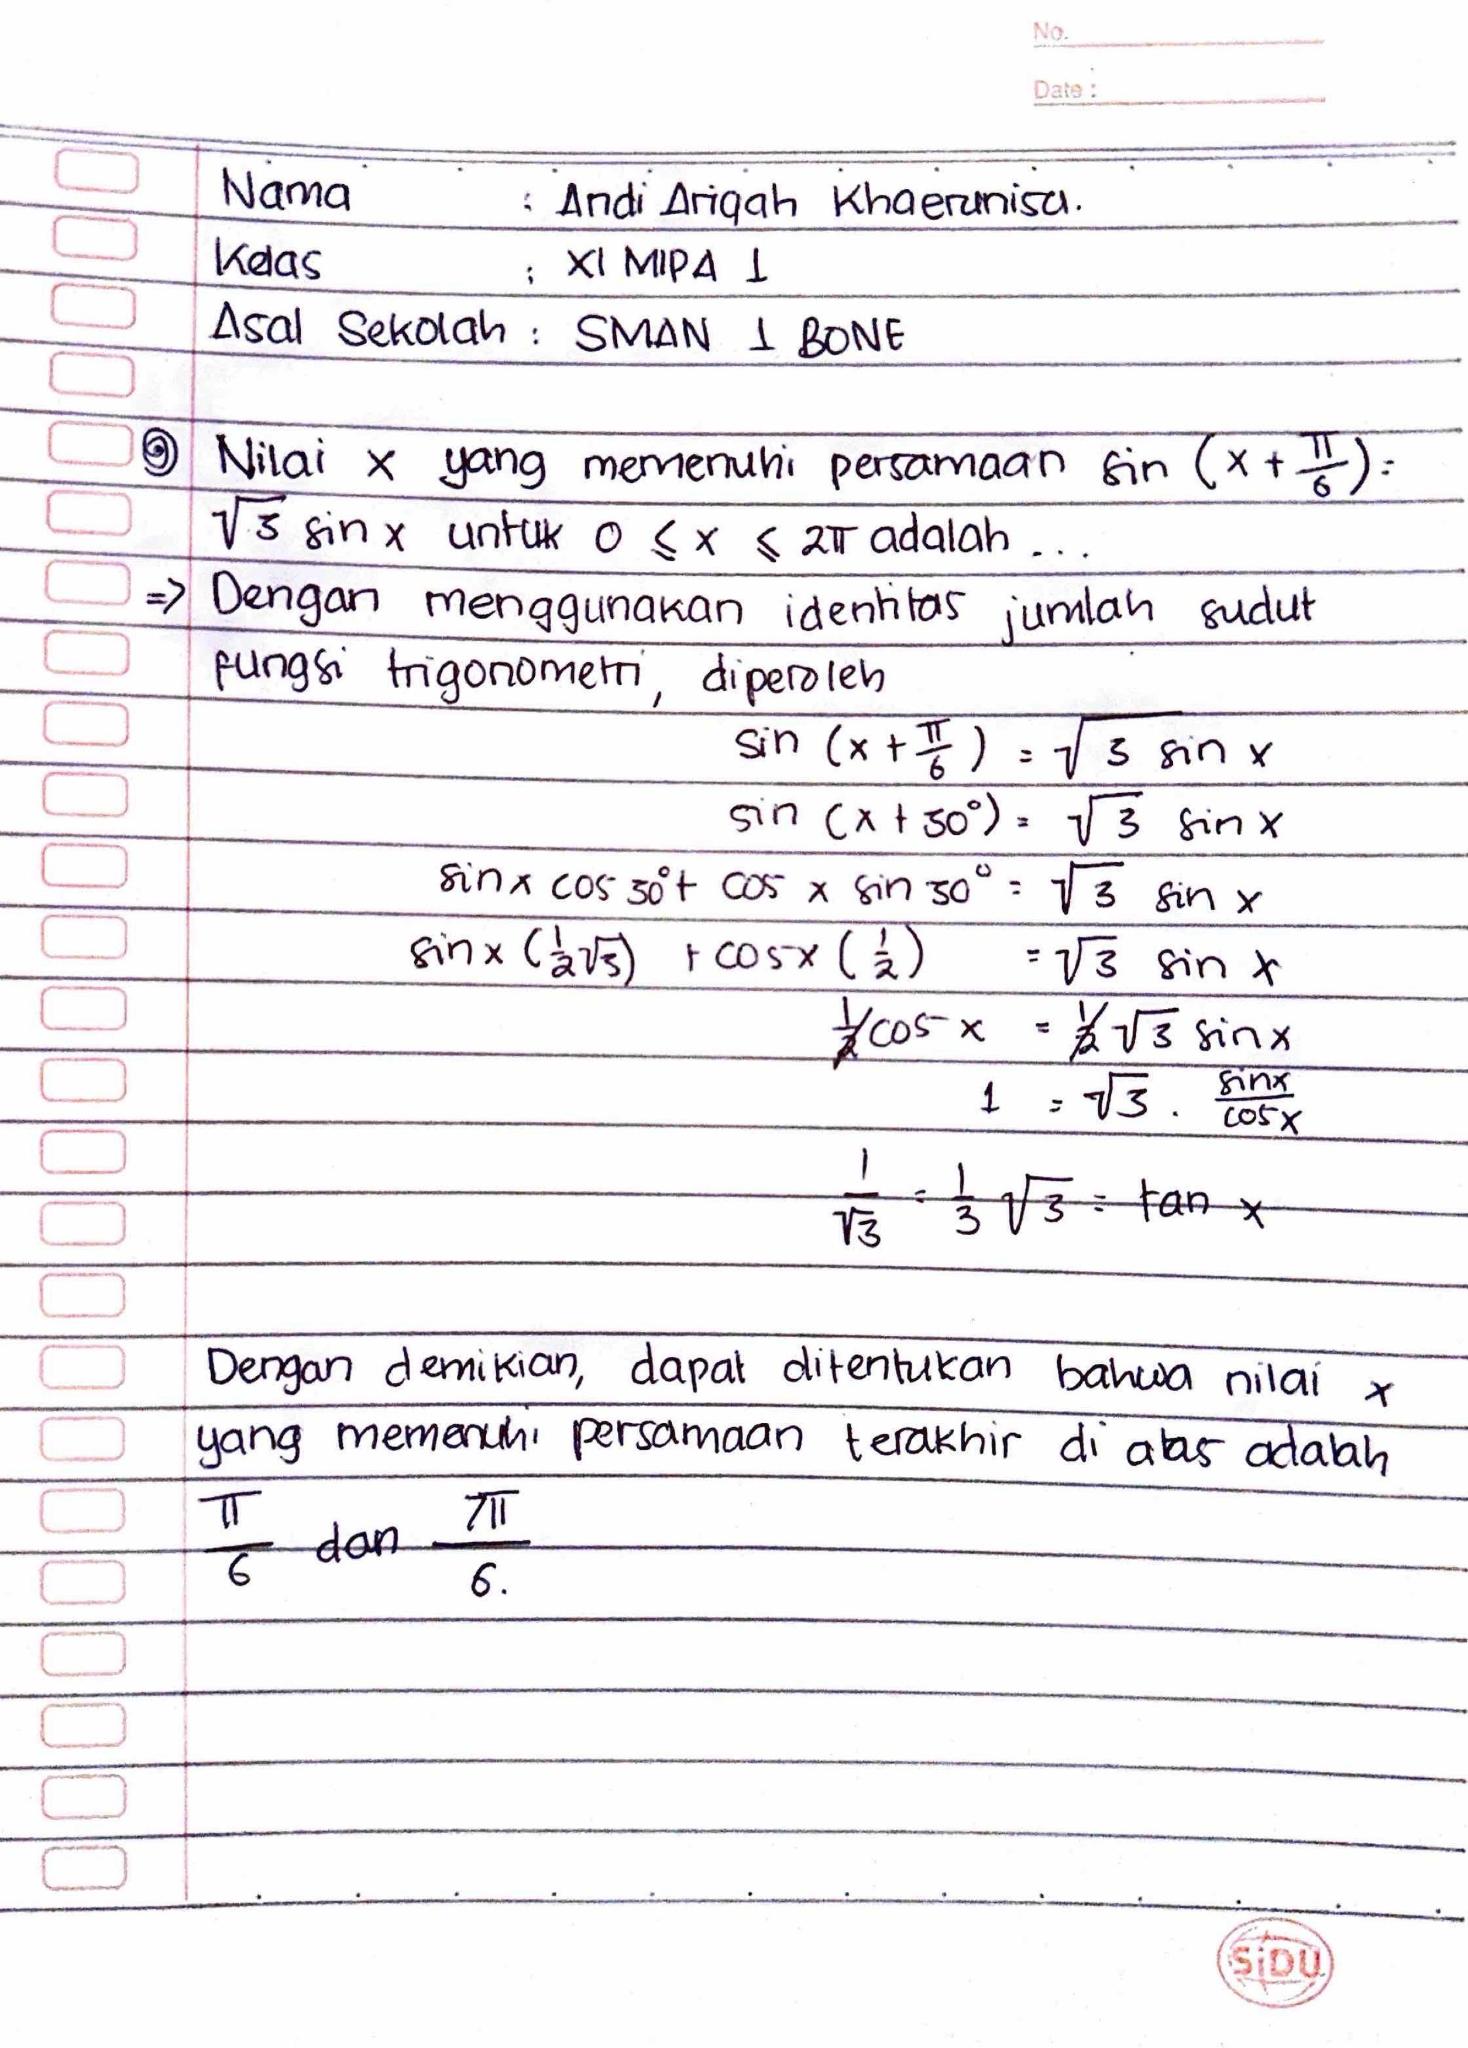 No.
Date :
Nama : Andi Ariqah Khaerunisa.
Kelas : XI MIPA 1
Asal Sekolah : SMAN 1 BONE
⑨ Nilai x yang memenuhi persamaan sin (x + π/6) =
√3 sin x untuk 0 ≤ x ≤ 2π adalah ...
=> Dengan menggunakan identitas jumlah sudut
fungsi trigonometri, diperoleh
sin (x + π/6) = √3 sin x
sin (x + 30°) = √3 sin x
sin x cos 30° + cos x sin 30° = √3 sin x
sin x (1/2 √3) + cos x (1/2) = √3 sin x
1/2 cos x = 1/2 √3 sin x
1 = √3 . sin x/cos x
1/√3 = 1/3 √3 = tan x
Dengan demikian, dapat ditentukan bahwa nilai x
yang memenuhi persamaan terakhir di atas adalah
π/6 dan 7π/6.
SiDU